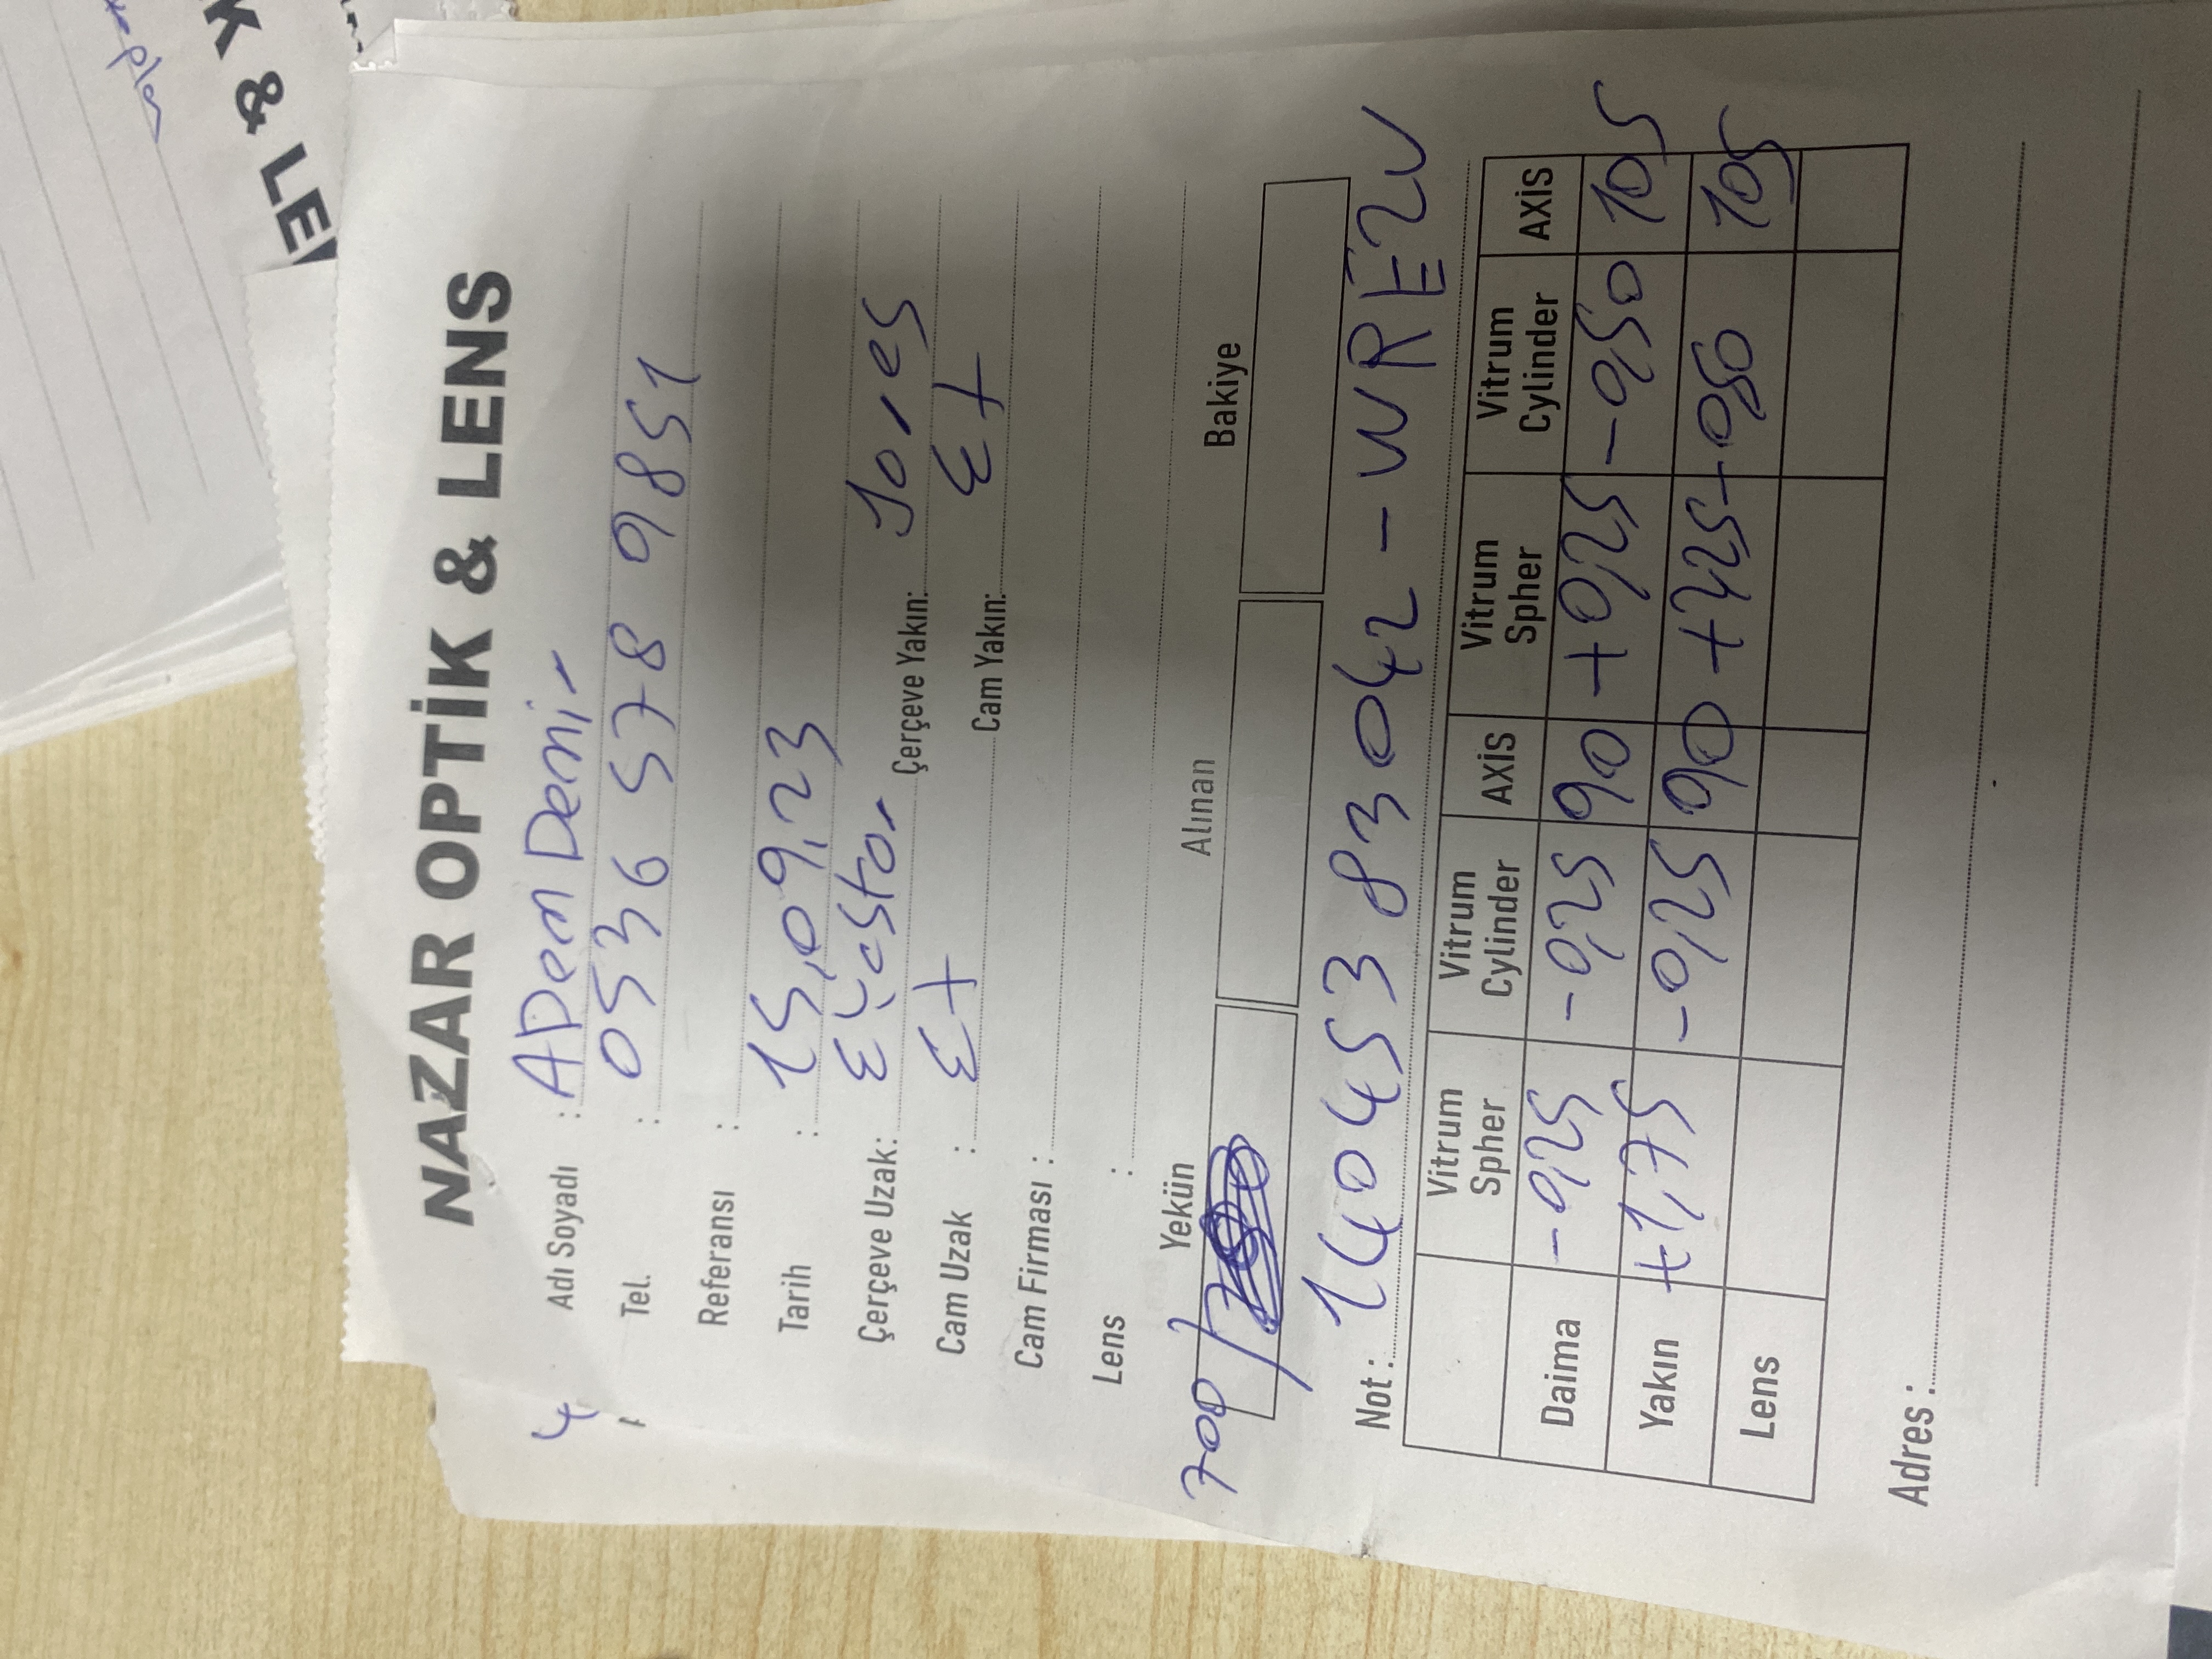 K & LE
NAZAR OPTİK & LENS
Adı Soyadı : ADem Demir
Tel. : 0536 578 9851
Referansı :
Tarih : 15,09,23
Çerçeve Uzak: Çerçeve Yakın:
Cam Uzak : Cam Yakın:
Cam Firması :
Lens :
Yekün Alınan Bakiye
700/
Not : 14045383042 - WRE2V
Vitrum Spher Vitrum Cylinder AXİS Vitrum Spher Vitrum Cylinder AXİS
Daima -0,25 -0,25 90 +0,25 -0,50 105
Yakın +1,75 -0,25 90 +2,25 -0,50 105
Lens
Adres :